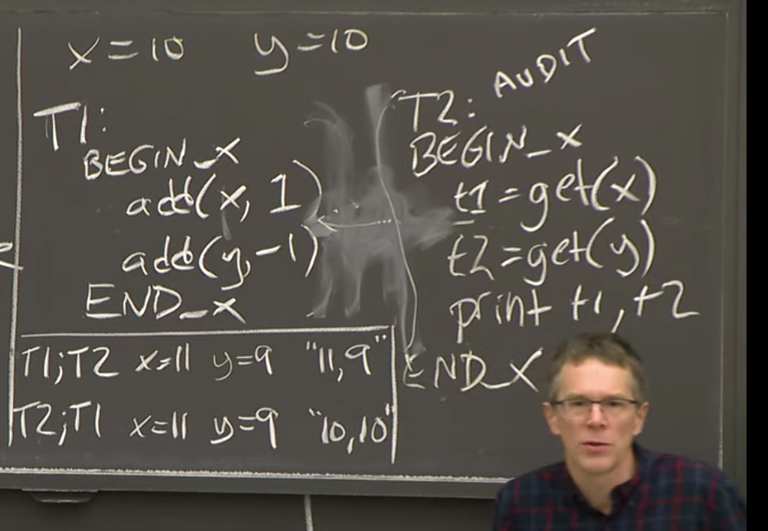 x=10 y=10
T1:
BEGIN_X
add(x, 1)
add(y,-1)
END_X
T2: AUDIT
BEGIN_X
t1=get(x)
t2=get(y)
print t1,t2
END_X
T1;T2 x=11 y=9 "11,9"
T2;T1 x=11 y=9 "10,10"